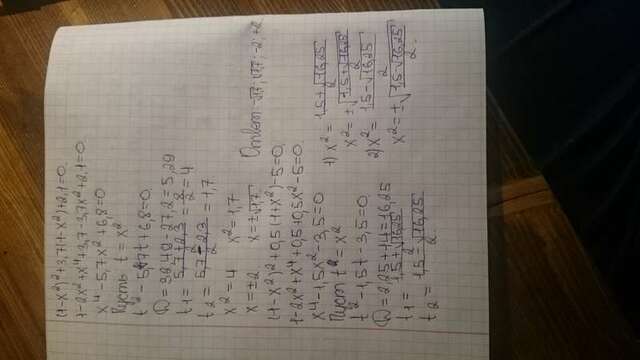 (1-x²)²+3,7(1-x²)+2,1=0.
1-2x²+x⁴+3,7-3,7x²+2,1=0.
x⁴-5,7x²+6,8=0
Пусть t=x²
t²-5,7t+6,8=0.
D=32,49-27,2=5,29
t₁=(5,7+2,3)/2=8/2=4
t₂=(5,7-2,3)/2=1,7
x²=4 x²=1,7
x=±2 x=±√1,7 Ответ -√1,7; √1,7; -2; +2
(1-x²)²+0,5(1+x²)-5=0.
1-2x²+x⁴+0,5+0,5x²-5=0
x⁴-1,5x²-3,5=0
Пуст t²=x²
t²-1,5t-3,5=0
D=2,25+14=16,25
t₁=(1,5+√16,25)/2
t₂=(1,5-√16,25)/2.
1) x²=(1,5+√16,25)/2
x²=±√((1,5+√16,25)/2)
2) x²=(1,5-√16,25)/2
x²=±√((1,5-√16,25)/2).